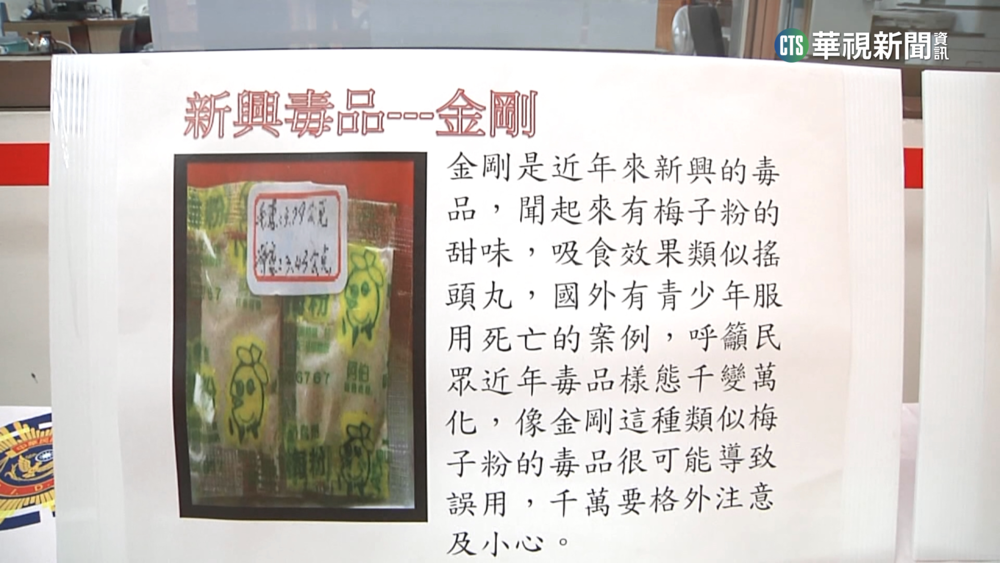 CTS 華視新聞資訊
新興毒品---金剛
金剛是近年來新興的毒
品，聞起來有梅子粉的
甜味，吸食效果類似搖
頭丸，國外有青少年服
用死亡的案例，呼籲民
眾近年毒品樣態千變萬
化，像金剛這種類似梅
子粉的毒品很可能導致
誤用，千萬要格外注意
及小心。
粉
6767
粉